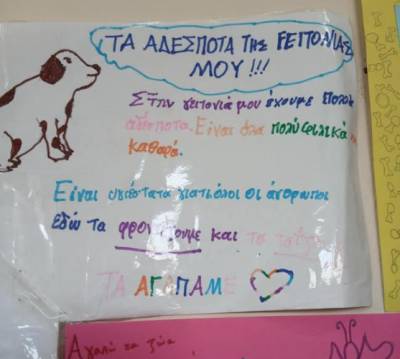 ΤΑ ΑΔΕΣΠΟΤΑ ΤΗΣ ΓΕΙΤΟΝΙΑΣ
ΜΟΥ!!!
Στην γειτονιά μου έχουμε πολλά
αδέσποτα. Είναι όλα πολύ φιλικά
καθαρά.
Είναι υγιέστατα γιατί όλοι οι άνθρωποι
εδώ τα φροντίζουμε και τα ταΐζουμε
ΤΑ ΑΓΑΠΑΜΕ
Αγαπώ τα ζώα